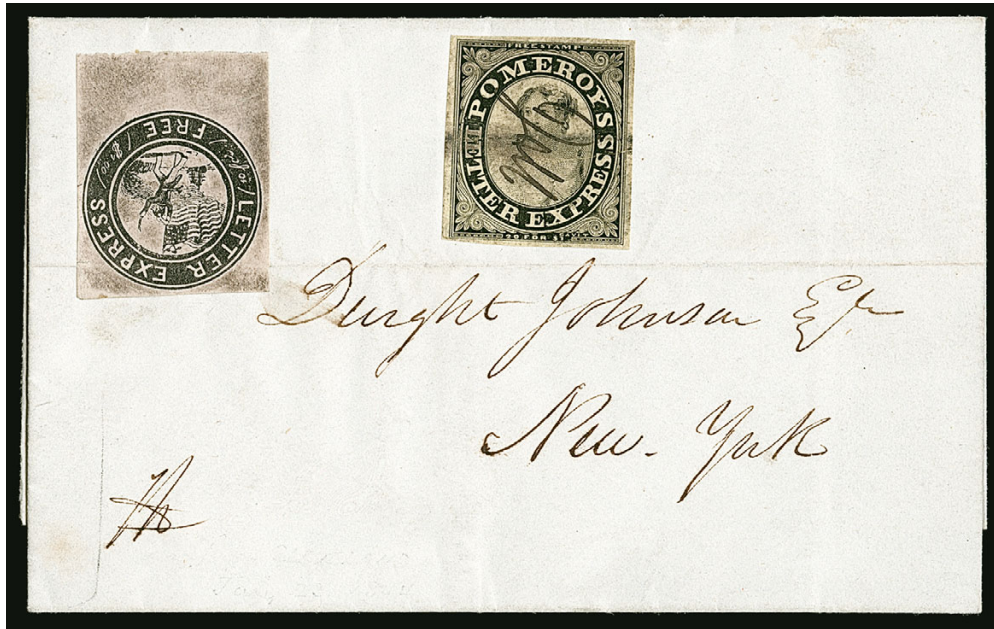 LETTER EXPRESS
FREE
FREE STAMP
POMEROY'S
LETTER EXPRESS
20 FOR $1
Dwight Johnson Esqr
New-York